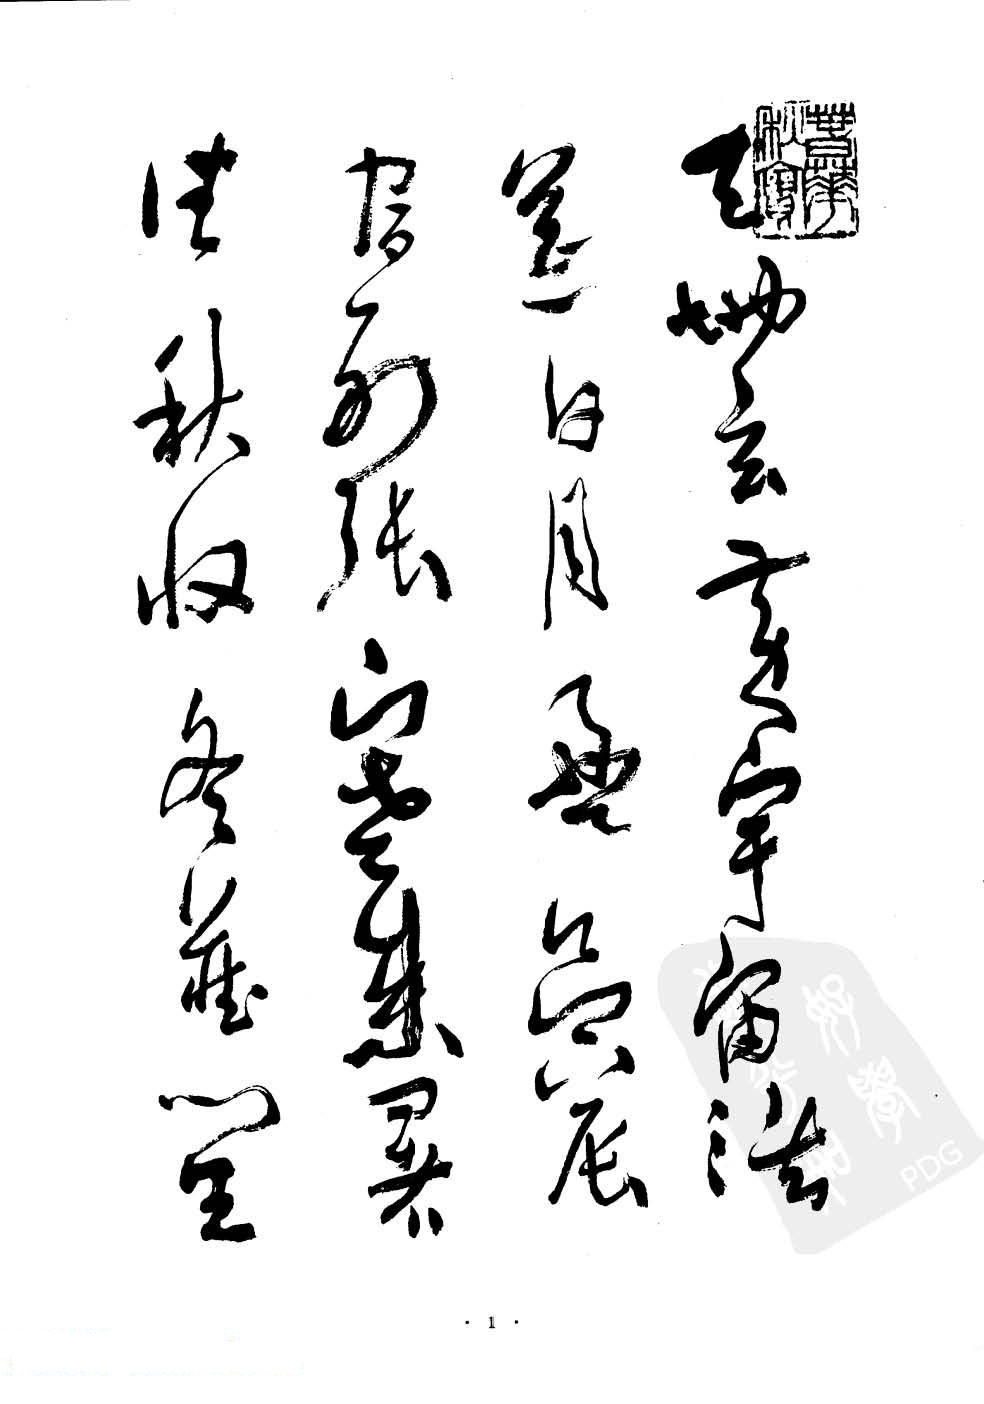 天地玄黃宇宙洪
荒日月盈昃辰
宿列張寒來暑
往秋收冬藏閏
· 1 ·
PDG